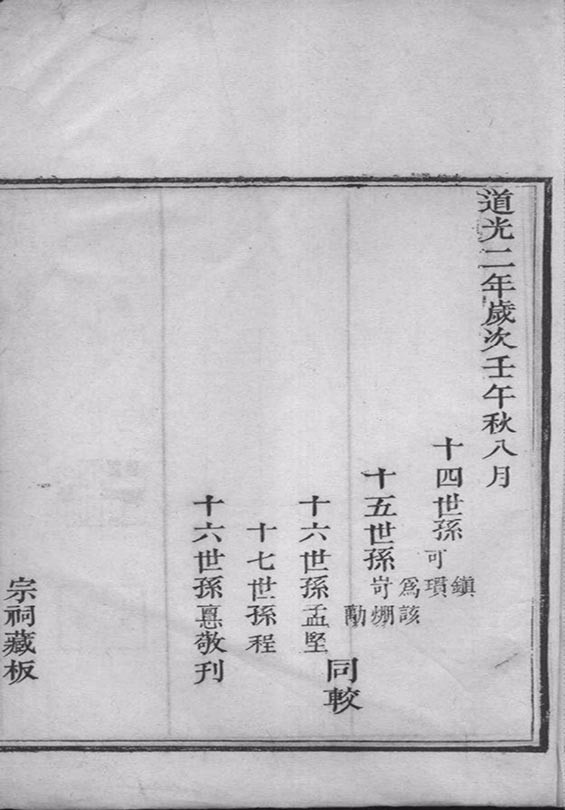 道光二年歲次壬午秋八月
十四世孫可瑻鎮
十五世孫岢爲
勵燗該
十六世孫孟堅
同較
十七世孫程
十六世孫悳敬刊
宗祠藏板